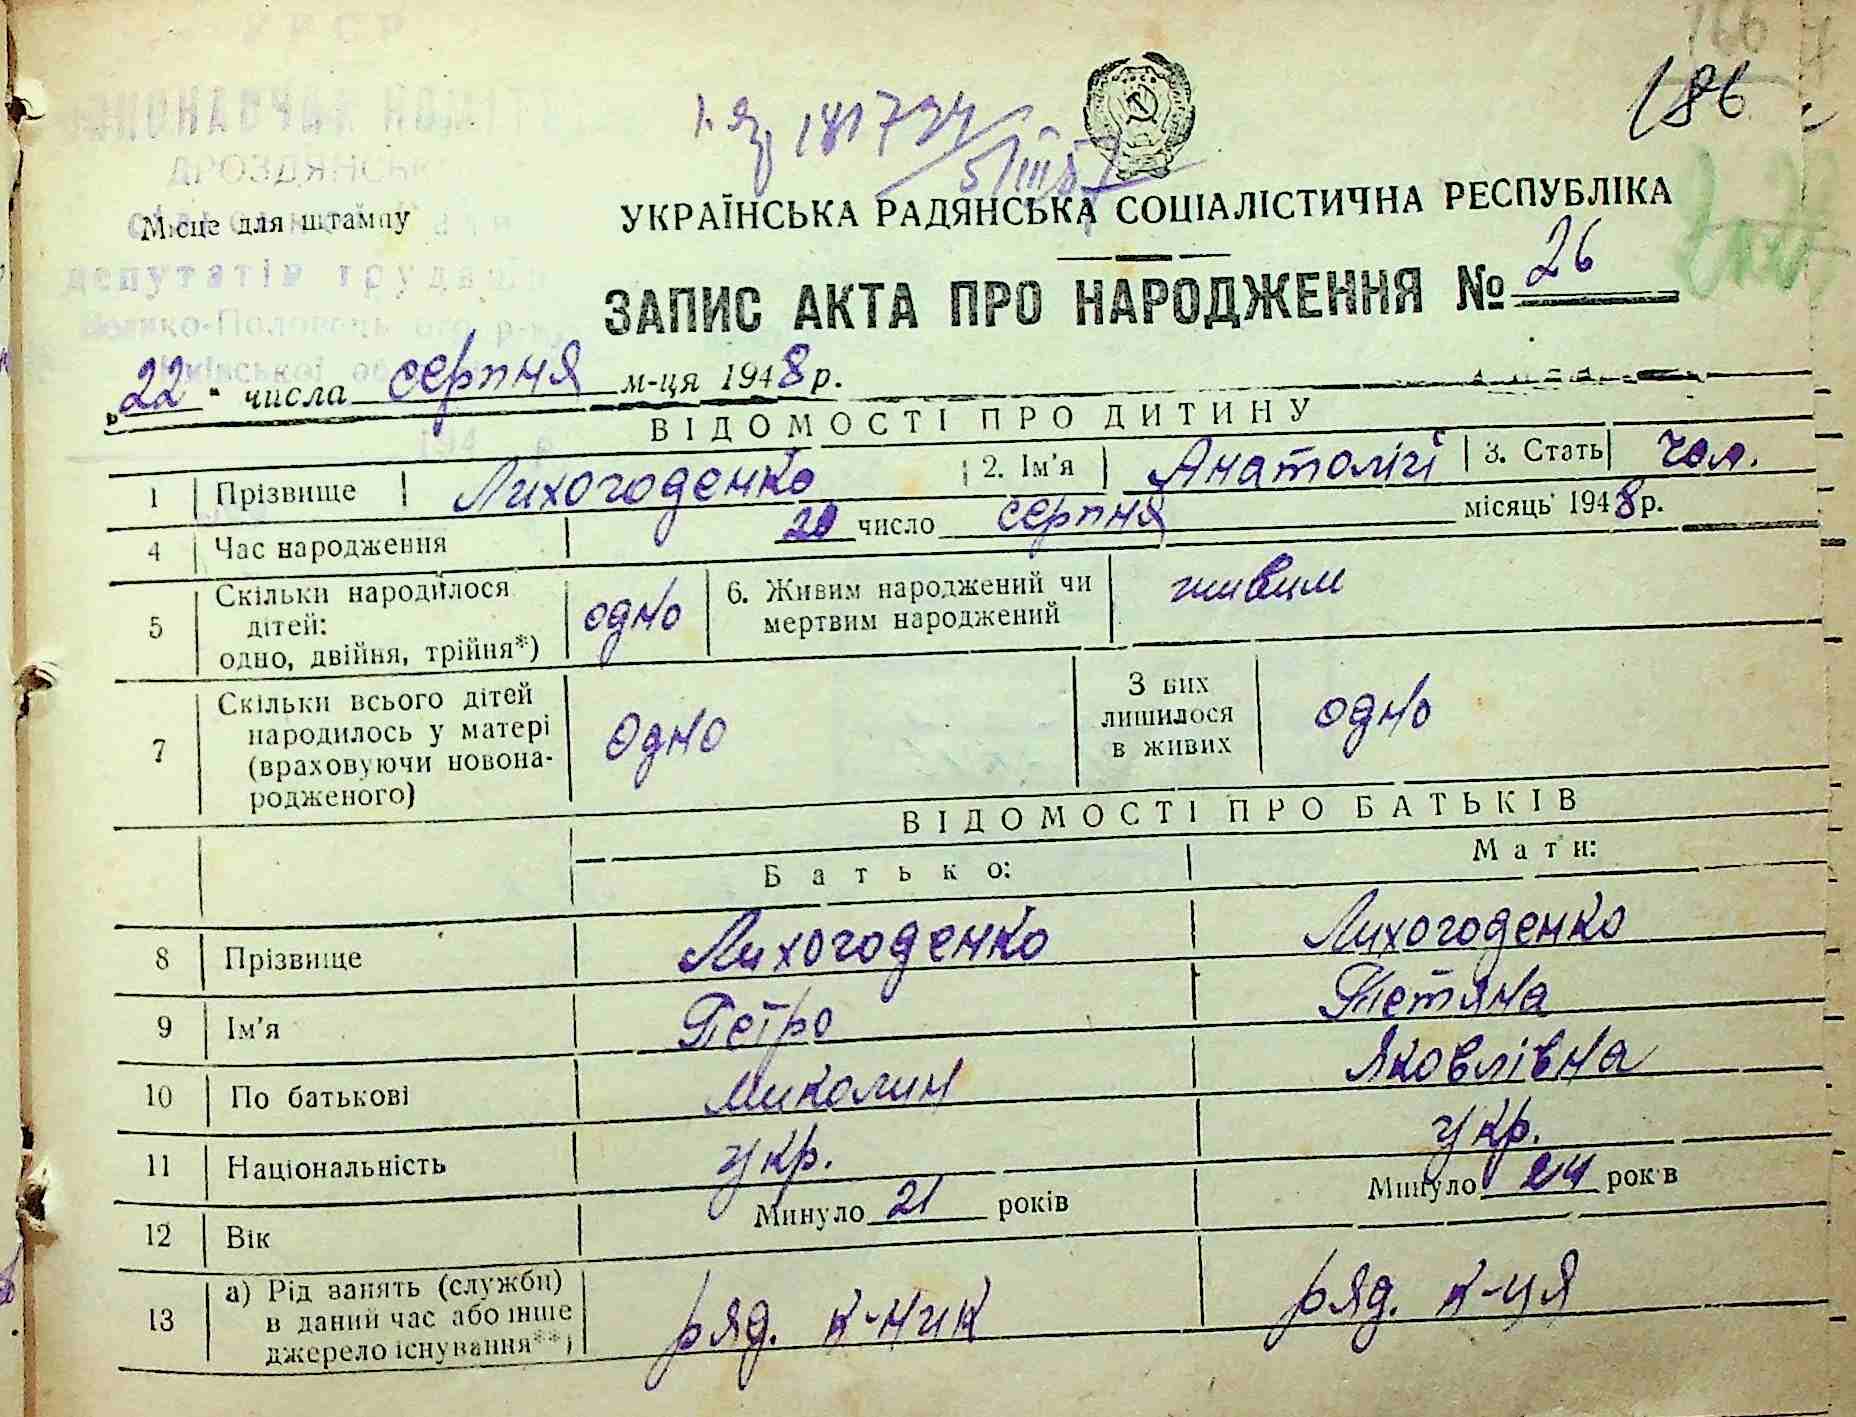 186
ДРОЗДЯНСЬК
Місце для штампу
УКРАЇНСЬКА РАДЯНСЬКА СОЦІАЛІСТИЧНА РЕСПУБЛІКА
депутатів трудящ
ЗАПИС АКТА ПРО НАРОДЖЕННЯ № 26
„22“ числа серпня м-ця 1948 р.
194 р
ВІДОМОСТІ ПРО ДИТИНУ
1 Прізвище Лихогоденко 2. Ім'я Анатолій 3. Стать чол.
4 Час народження 20 число серпня місяць 1948 р.
5 Скільки народилося
дітей:
одно, двійня, трійня*)
одно
6. Живим народжений чи
мертвим народжений
живим
7 Скільки всього дітей
народилось у матері
(враховуючи новона-
родженого)
одно
З них
лишилося
в живих
одно
ВІДОМОСТІ ПРО БАТЬКІВ
Батько: Мати:
8 Прізвище Лихогоденко Лихогоденко
9 Ім'я Петро Тетяна
10 По батькові Миколин Яковлівна
11 Національність укр. укр.
12 Вік Минуло 21 років Минуло 24 рок в
13 а) Рід занять (служби)
в даний час або інше
джерело існування**)
ряд. к-ник ряд. к-ця